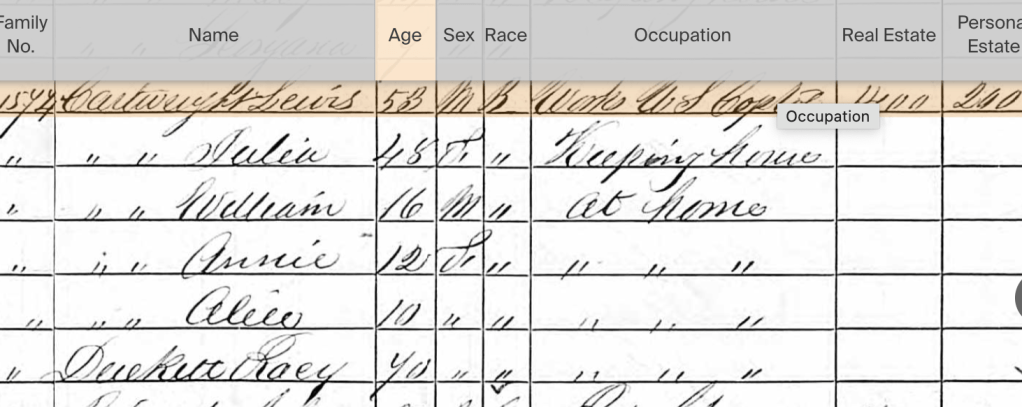 Family No. Name Age Sex Race Occupation Real Estate Persona Estate
1574 Cartwright Lewis 53 M B Work U.S. 1400 200
Occupation
" " " Julia 48 F " Keeping home
" " " William 16 M " at home
" " " Annie 12 F " " " "
" " " Alice 10 " " " " "
" Duckett 70 " " " " "